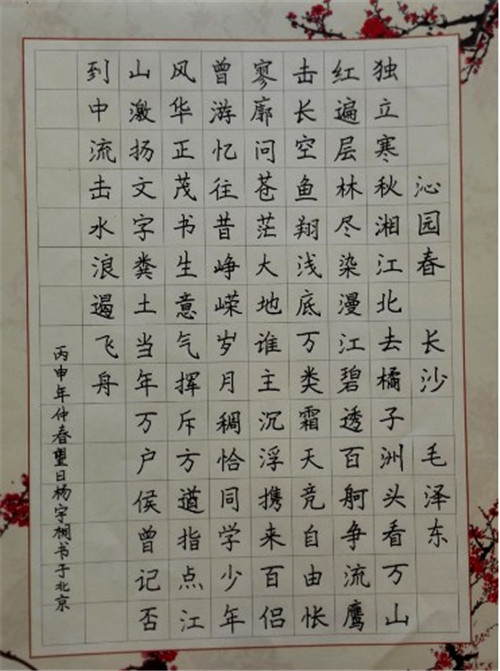 沁园春 长沙 毛泽东
独立寒秋湘江北去橘子洲头看万山
红遍层林尽染漫江碧透百舸争流鹰
击长空鱼翔浅底万类霜天竞自由怅
寥廓问苍茫大地谁主沉浮携来百侣
曾游忆往昔峥嵘岁月稠恰同学少年
风华正茂书生意气挥斥方遒指点江
山激扬文字粪土当年万户侯曾记否
到中流击水浪遏飞舟
丙申年仲春望日杨宇书于北京